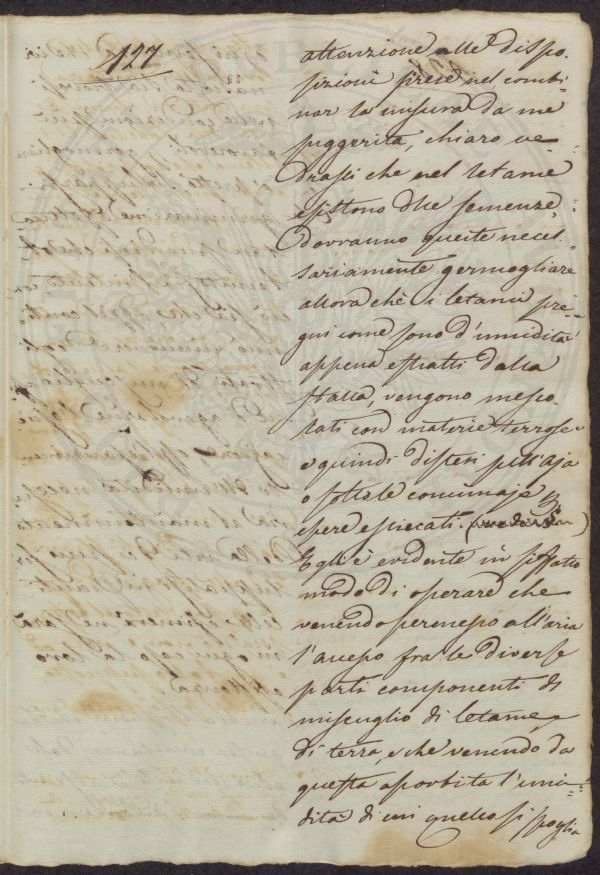 127
attenzione alle dispo-
sizioni prese nel combi-
nar la misura da me
suggerita, chiaro ve-
drassi che nel letame
esistono due semenze,
dovranno queste neces-
sariamente germogliare
allora che i letami pre-
gni come sono d'umidità
appena estratti dalla
stalla, vengono mesco-
lati con materie terrose
e quindi distesi sull'aja
o sotto le concimaje
essere essiccati.
Egli è evidente in siffatto
modo di operare che
venendo permesso all'aria
l'accesso fra le diverse
parti componenti di
miscuglio di letame, e
di terra, e che venendo da
questa assorbita l'umi-
dità di cui quello si spoglia